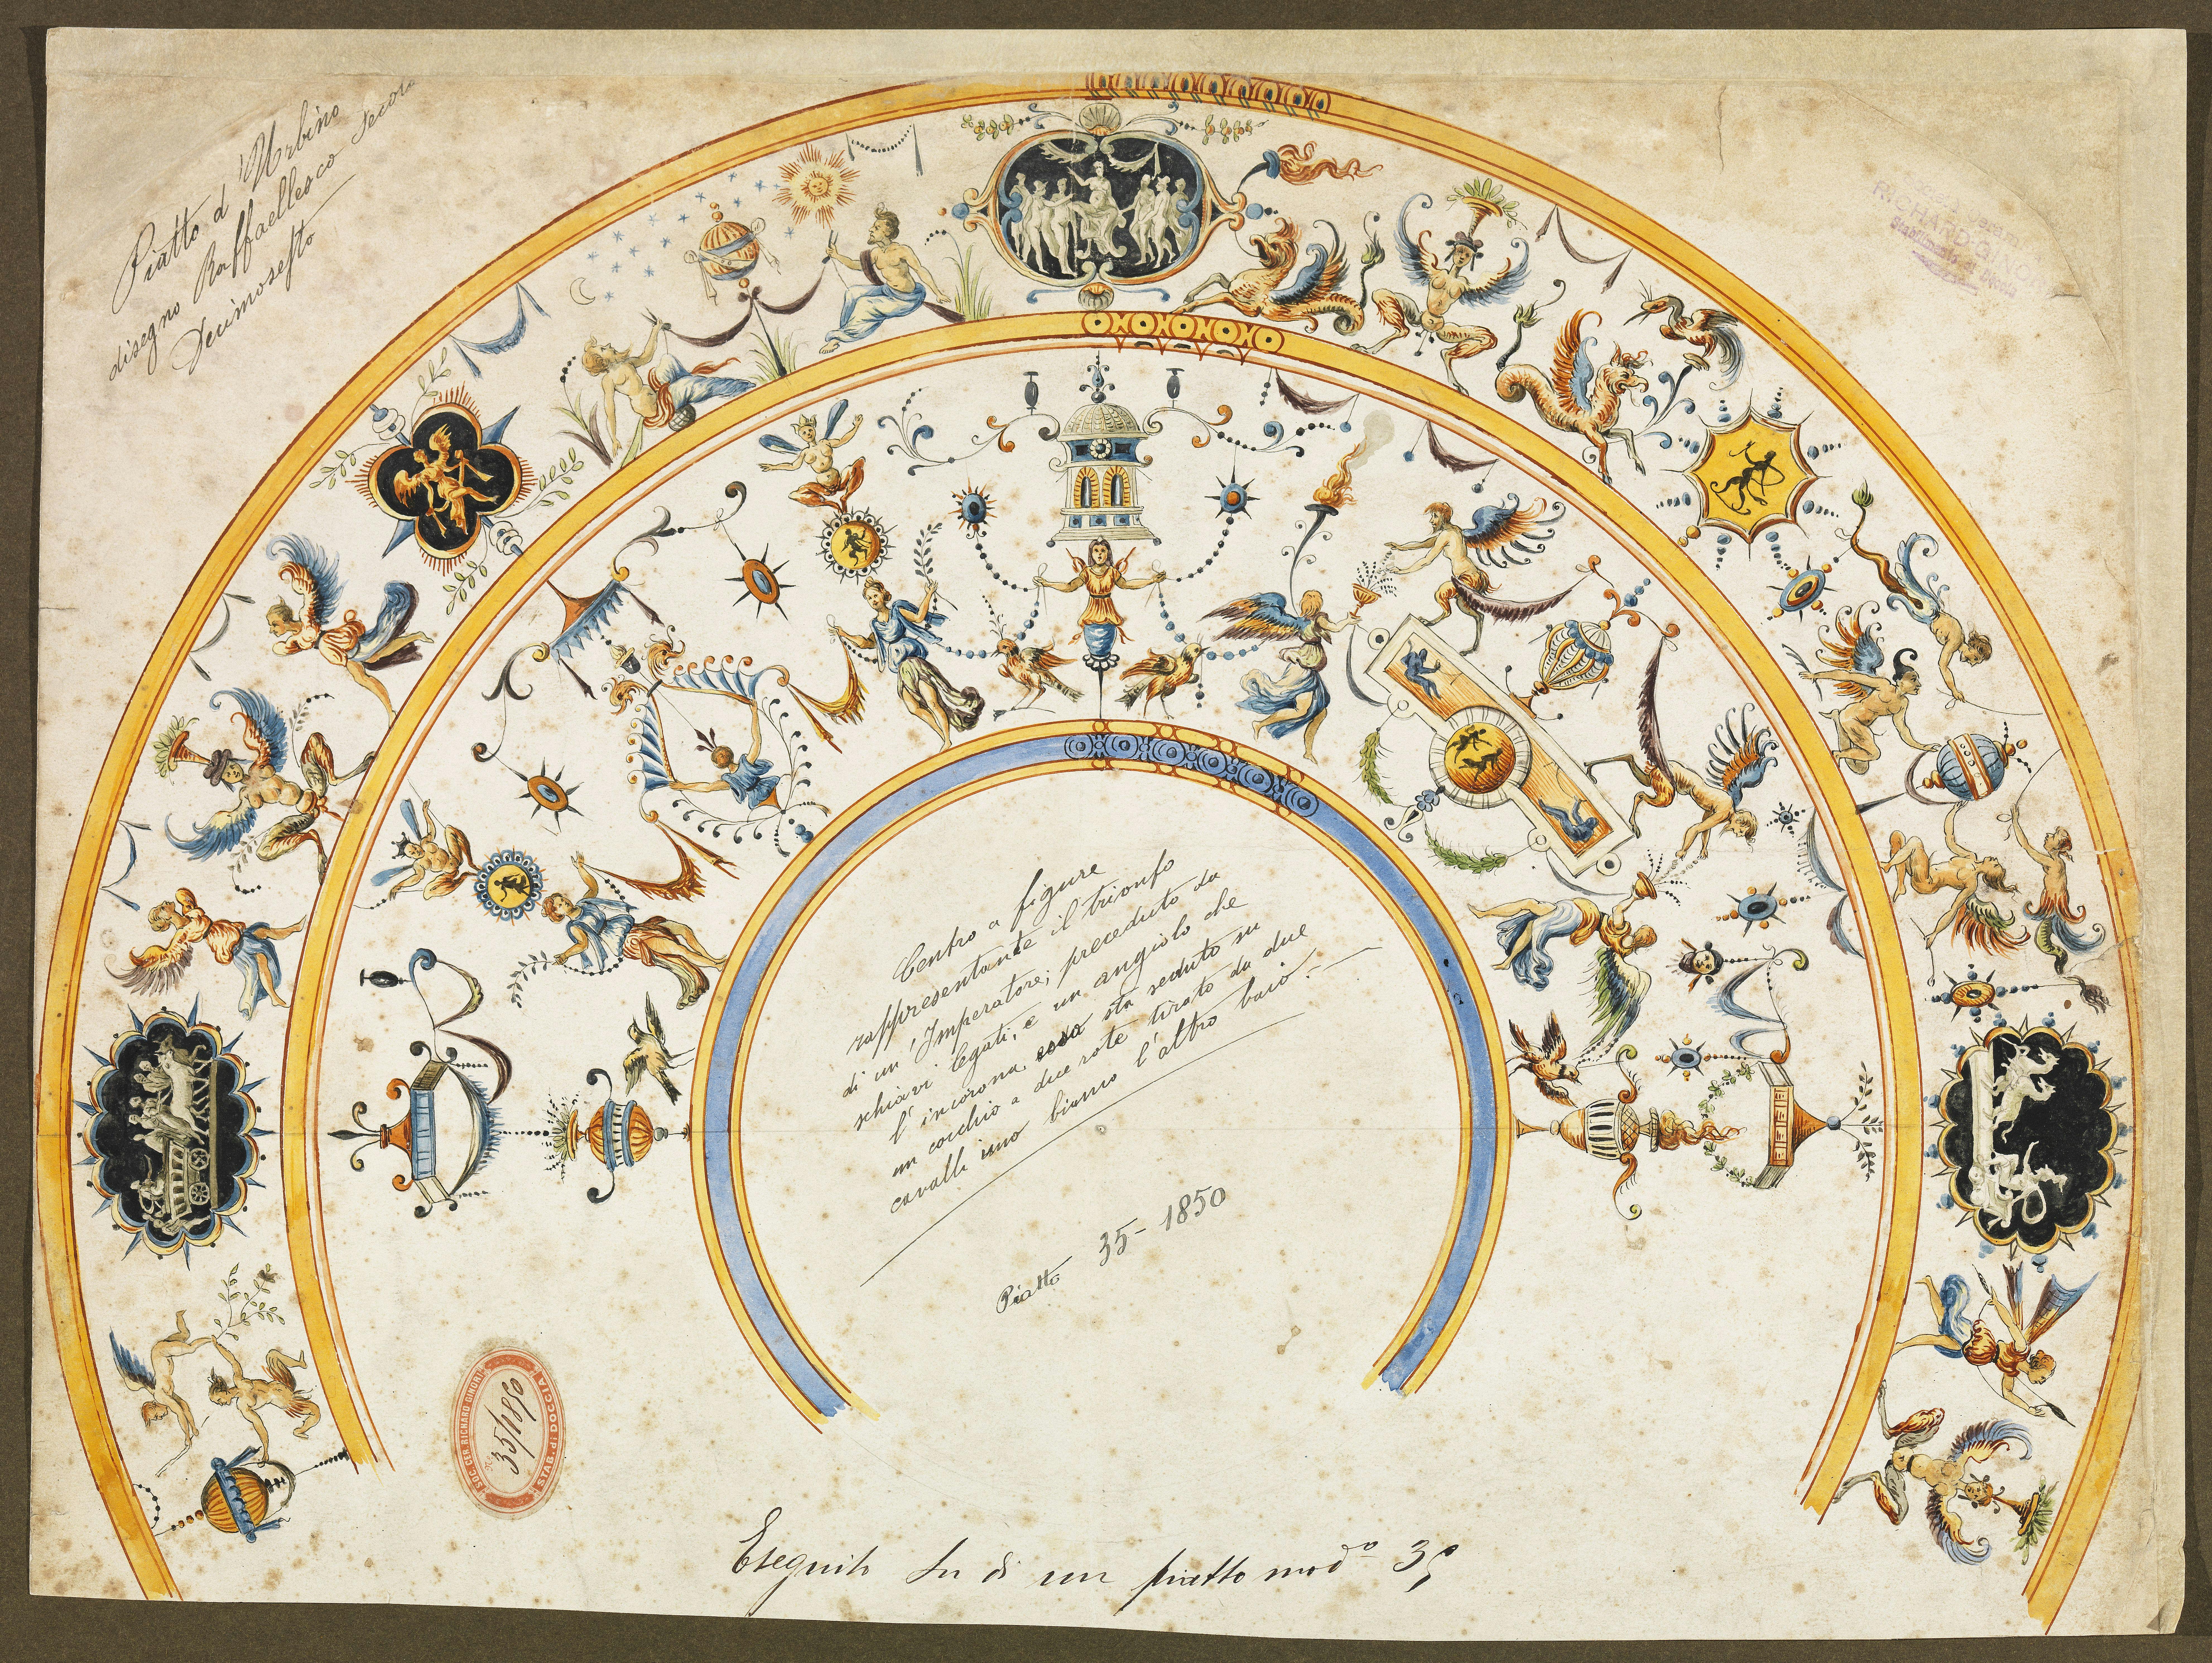 Piatto d'Urbino
disegno Raffaellesco Secolo
Decimosesto
RICHARD-GINORI
Stabilimento di Doccia
Centro a figure
rappresentante il trionfo
di un' Imperatore; preceduto da
schiavi legati, e un angiolo che
l' incorona, esso sta seduto su
un cocchio a due rote tirato da due
cavalli uno bianco l'altro baio.
Piatto 35-1850
SOC. CER. RICHARD GINORI
STAB. di DOCCIA
Eseguito su di un piatto mod.º 35